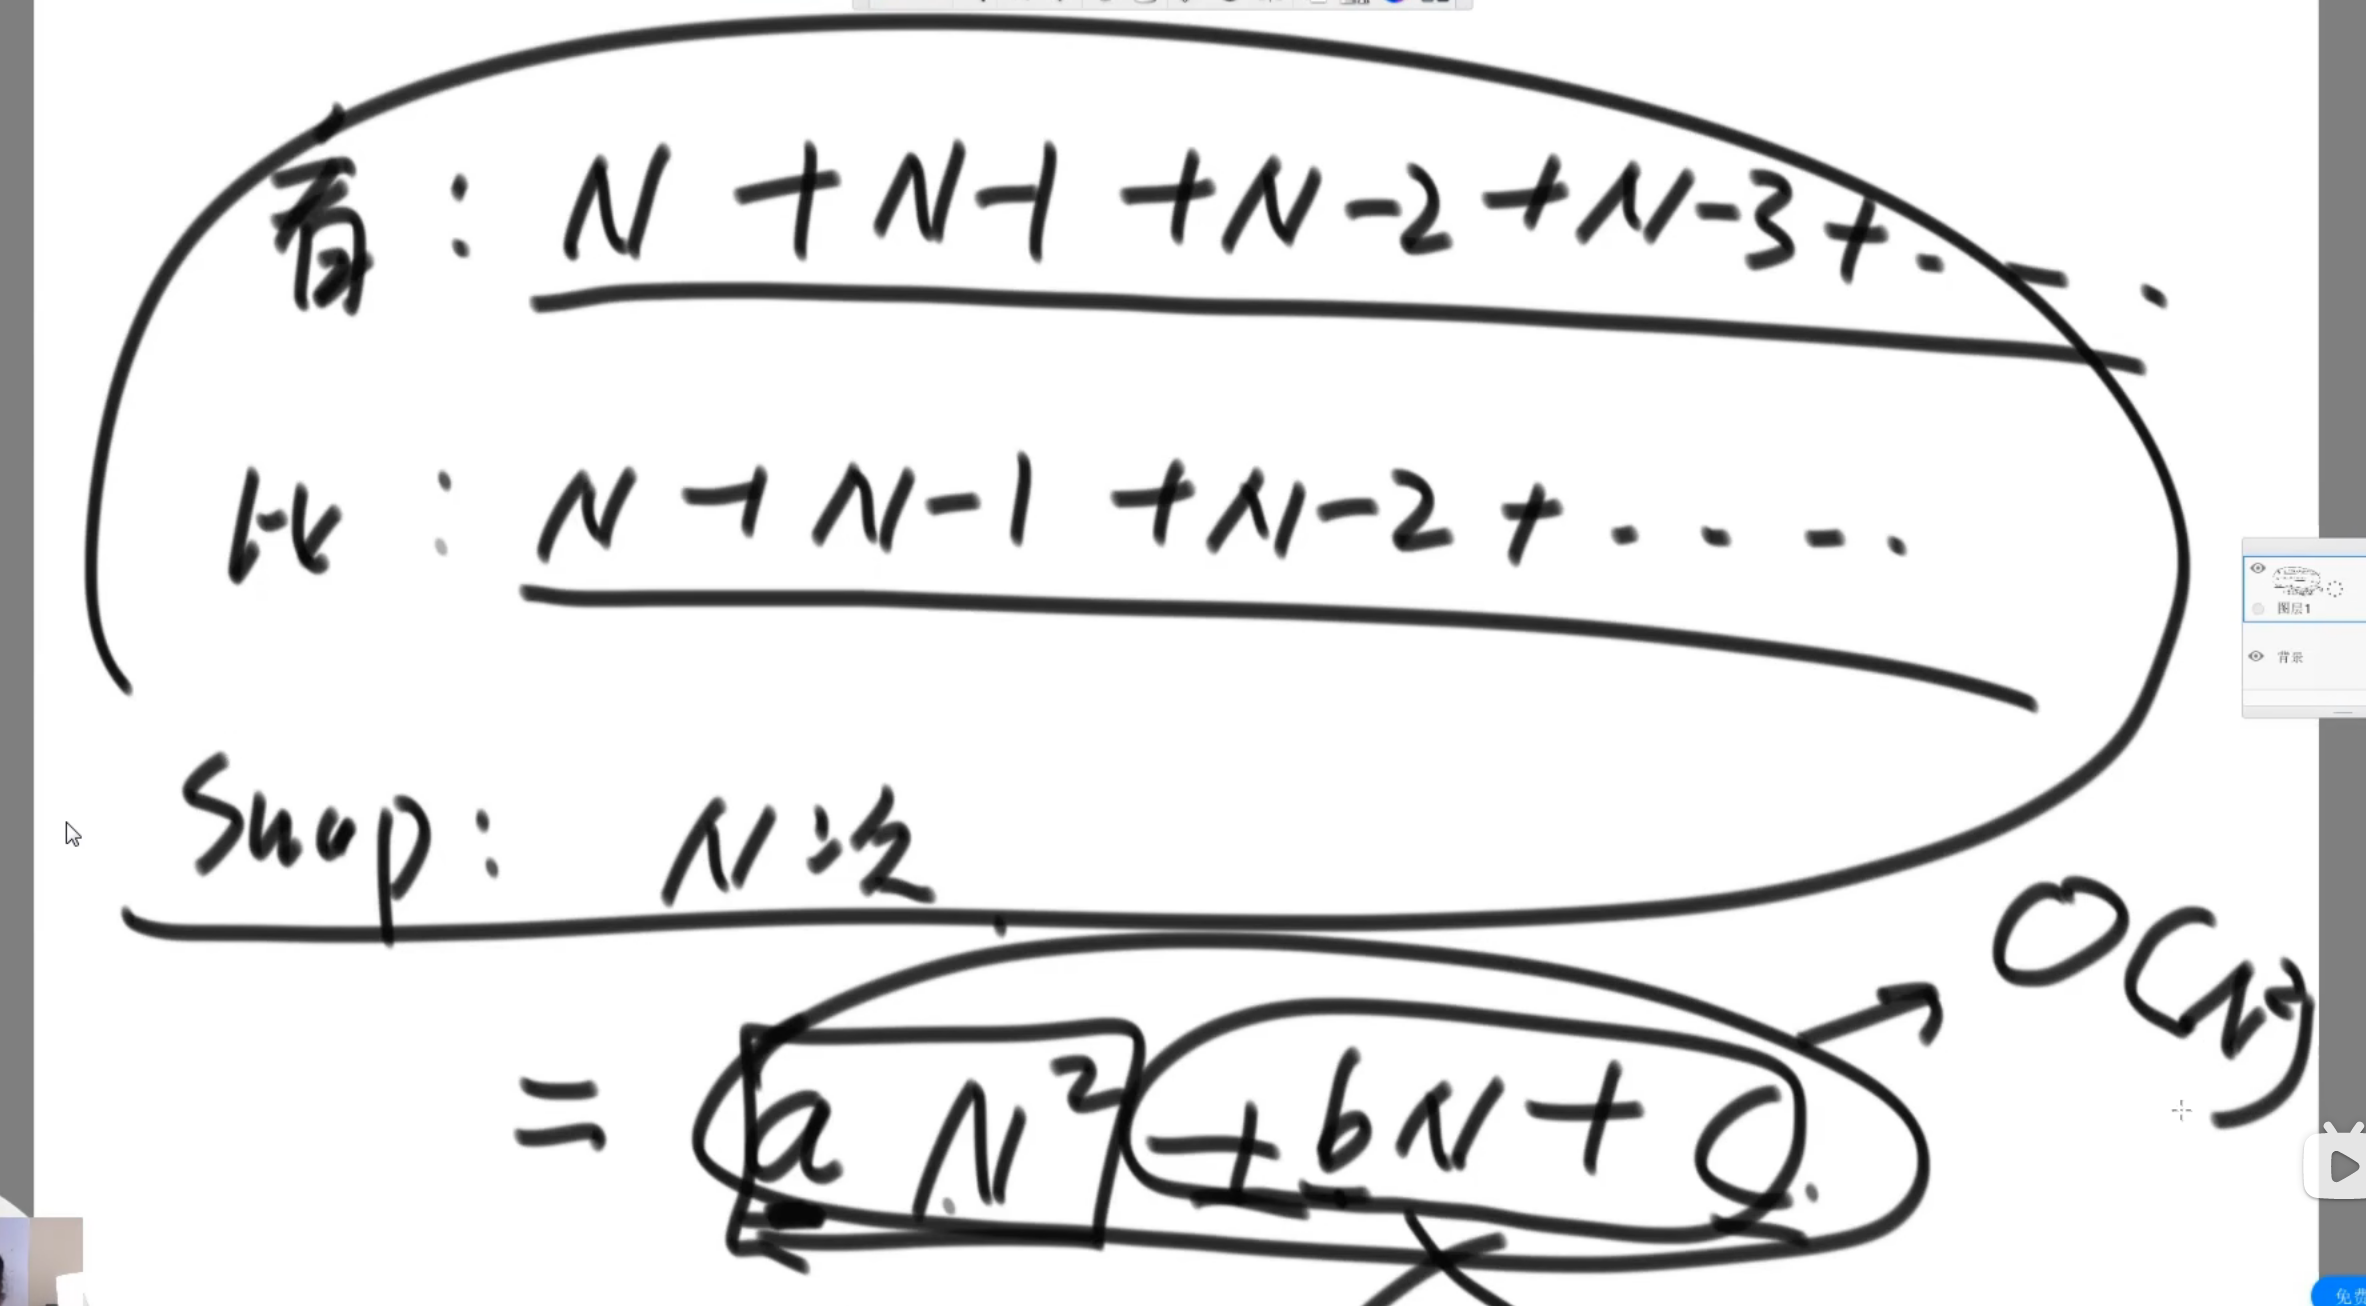 看: N + N-1 + N-2 + N-3 + ...
比: N + N-1 + N-2 + ....
Swap: N次
= aN² + bN + C.
O(N²)
图层1
背景
免费